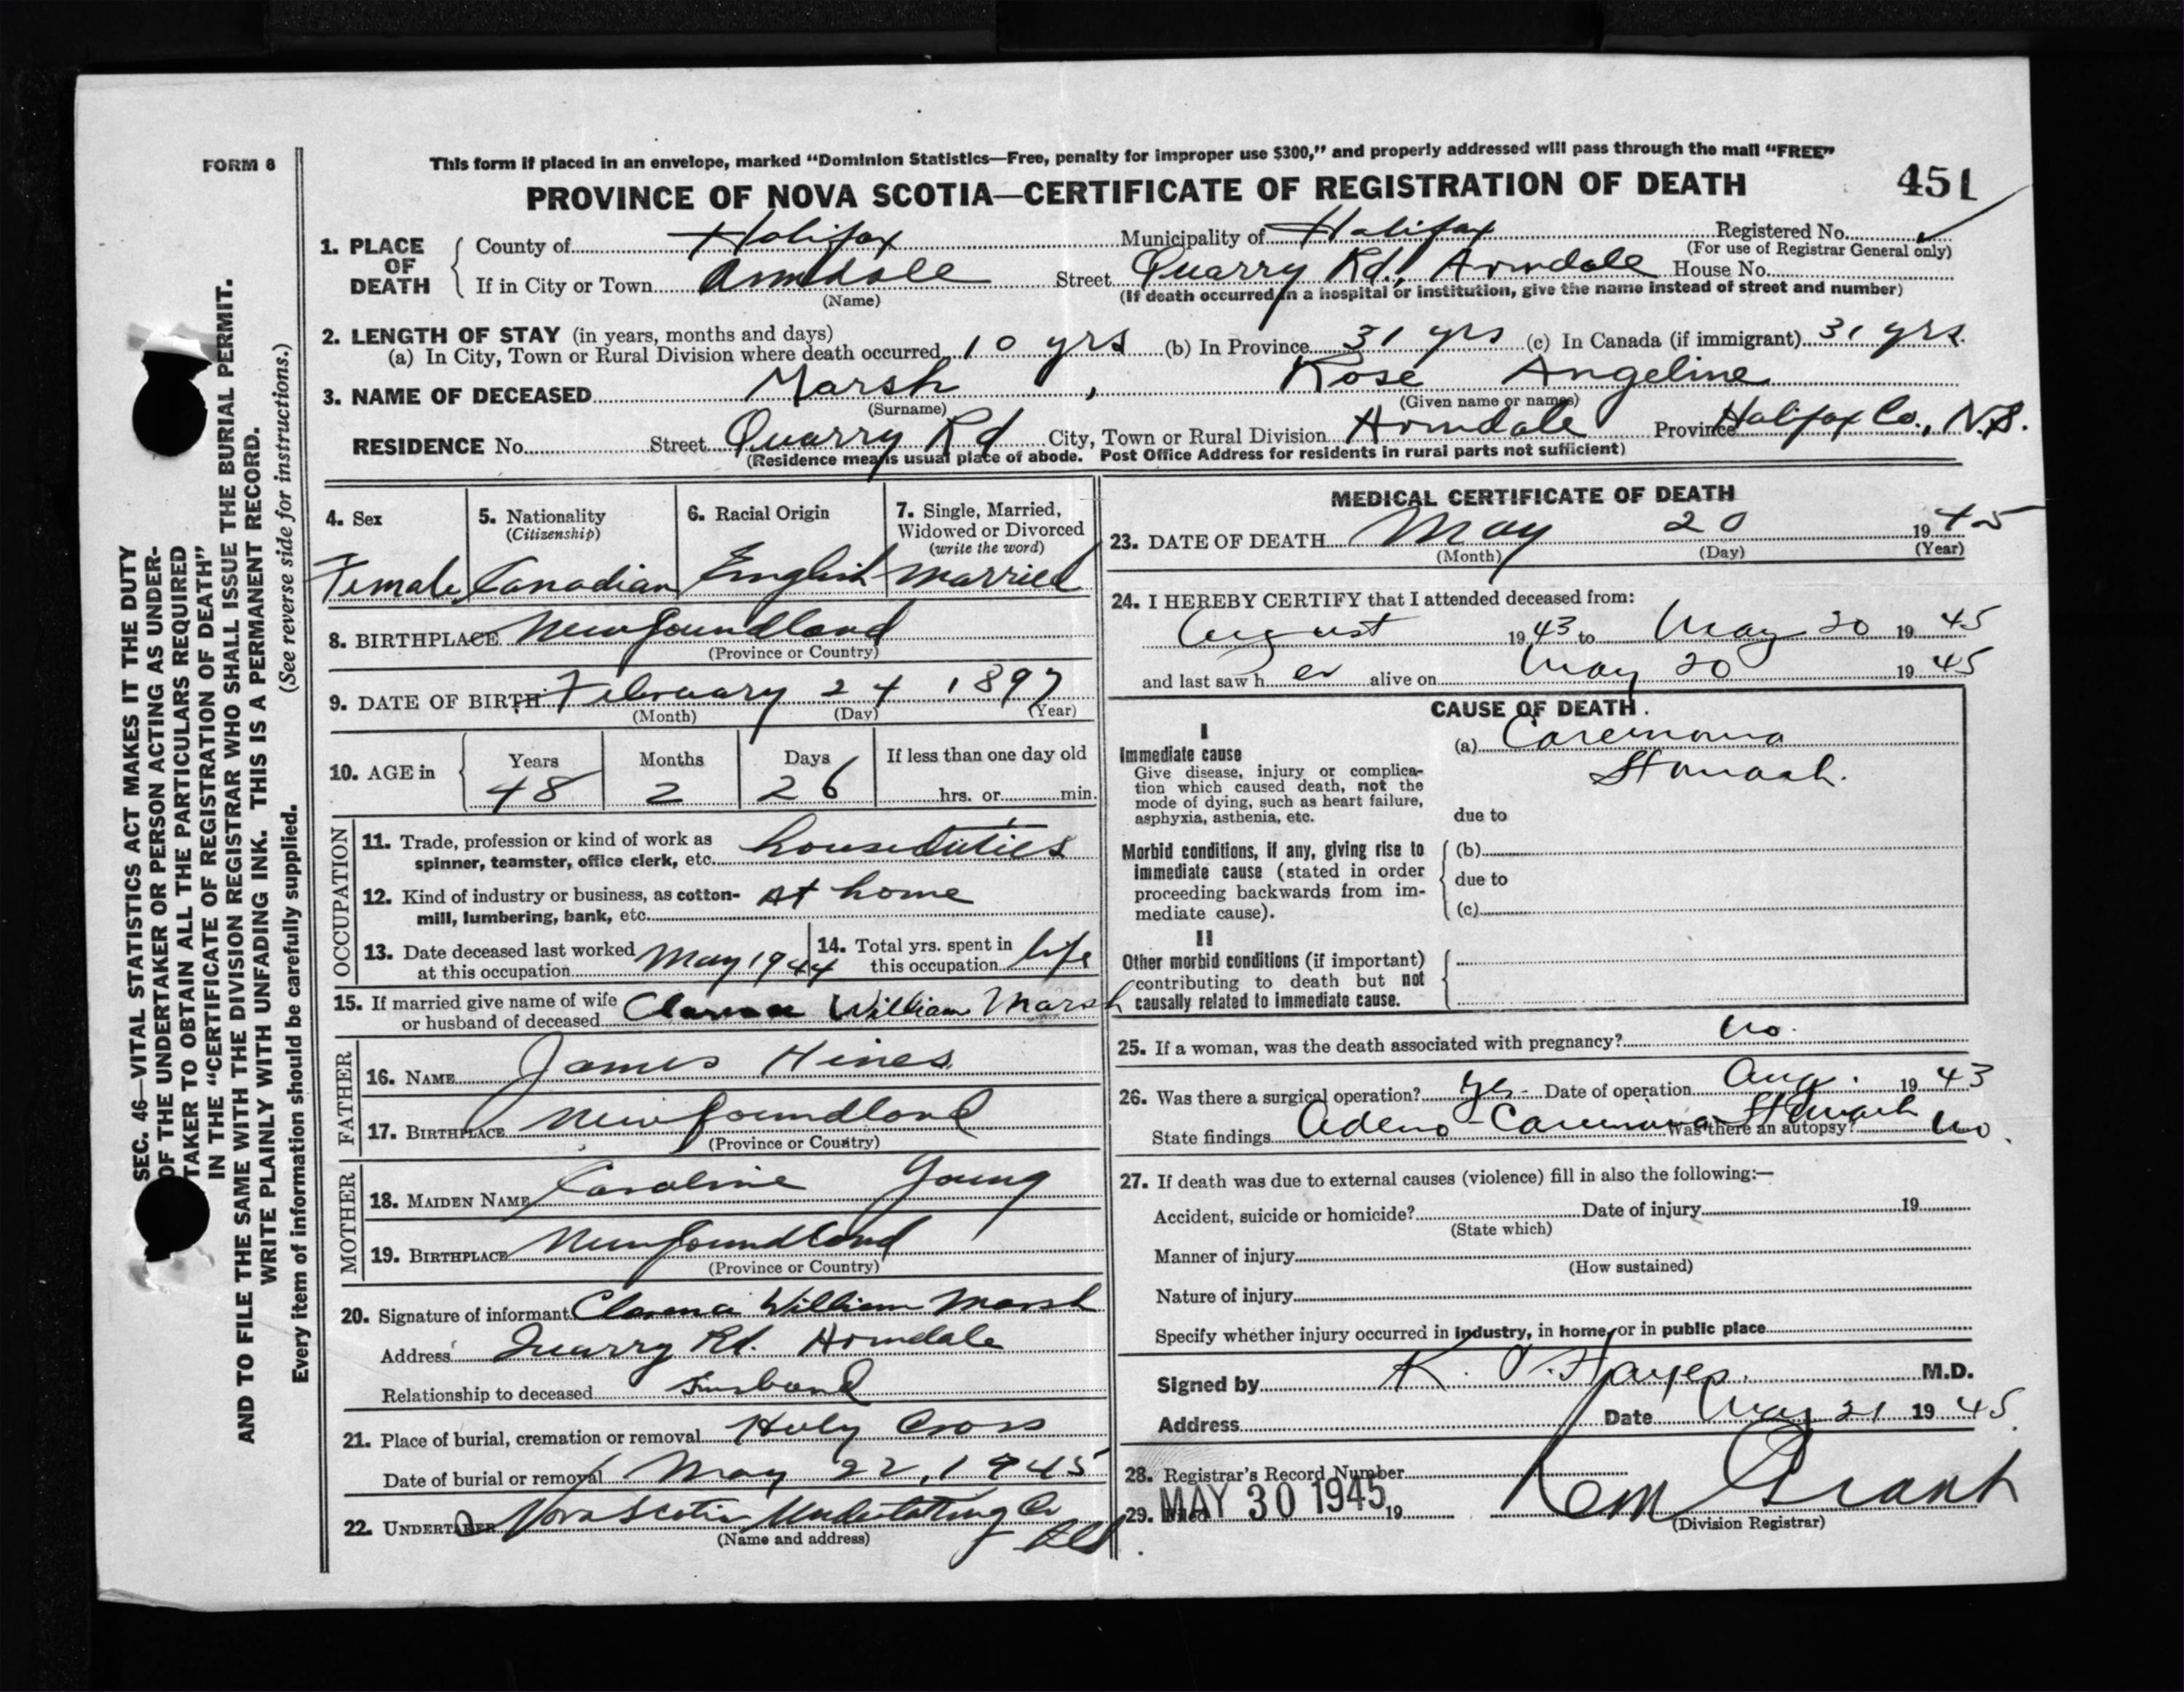 FORM 8
This form if placed in an envelope, marked “Dominion Statistics—Free, penalty for improper use $300,” and properly addressed will pass through the mail “FREE”
PROVINCE OF NOVA SCOTIA—CERTIFICATE OF REGISTRATION OF DEATH
451
1. PLACE OF DEATH
County of Halifax Municipality of Halifax Registered No. ✓
(For use of Registrar General only)
If in City or Town Armdale Street Quarry Rd., Armdale House No.
(Name) (If death occurred in a hospital or institution, give the name instead of street and number)
2. LENGTH OF STAY (in years, months and days)
(a) In City, Town or Rural Division where death occurred 10 yrs (b) In Province 31 yrs (c) In Canada (if immigrant) 31 yrs.
3. NAME OF DECEASED Marsh , Rose Angeline
(Surname) (Given name or names)
RESIDENCE No. Street Quarry Rd City, Town or Rural Division Armdale Province Halifax Co., N.S.
(Residence means usual place of abode. Post Office Address for residents in rural parts not sufficient)
4. Sex
Female
5. Nationality
(Citizenship)
Canadian
6. Racial Origin
English
7. Single, Married,
Widowed or Divorced
(write the word)
married
8. BIRTHPLACE Newfoundland
(Province or Country)
9. DATE OF BIRTH February 24 1897
(Month) (Day) (Year)
10. AGE in
Years Months Days If less than one day old
48 2 26 hrs. or min.
OCCUPATION
11. Trade, profession or kind of work as
spinner, teamster, office clerk, etc. house duties
12. Kind of industry or business, as cotton-
mill, lumbering, bank, etc. At home
13. Date deceased last worked
at this occupation May 1944
14. Total yrs. spent in
this occupation life
15. If married give name of wife
or husband of deceased Clarence William Marsh
FATHER
16. NAME James Hines
17. BIRTHPLACE Newfoundland
(Province or Country)
MOTHER
18. MAIDEN NAME Caroline Young
19. BIRTHPLACE Newfoundland
(Province or Country)
20. Signature of informant Clarence William Marsh
Address Quarry Rd. Armdale
Relationship to deceased Husband
21. Place of burial, cremation or removal Holy Cross
Date of burial or removal May 22, 1945
22. UNDERTAKER Nova Scotia Undertaking Co
(Name and address)
MEDICAL CERTIFICATE OF DEATH
23. DATE OF DEATH May 20 1945
(Month) (Day) (Year)
24. I HEREBY CERTIFY that I attended deceased from:
August 1943 to May 20 1945
and last saw her alive on May 20 1945
CAUSE OF DEATH.
I
Immediate cause
Give disease, injury or complica-
tion which caused death, not the
mode of dying, such as heart failure,
asphyxia, asthenia, etc.
(a) Carcinoma
Stomach.
due to
Morbid conditions, if any, giving rise to
immediate cause (stated in order
proceeding backwards from im-
mediate cause).
(b)
due to
(c)
II
Other morbid conditions (if important)
contributing to death but not
causally related to immediate cause.
25. If a woman, was the death associated with pregnancy? no.
26. Was there a surgical operation? yes Date of operation Aug. 1943
State findings Adeno-Carcinoma Stomach Was there an autopsy? no.
27. If death was due to external causes (violence) fill in also the following:—
Accident, suicide or homicide? Date of injury 19
(State which)
Manner of injury
(How sustained)
Nature of injury
Specify whether injury occurred in industry, in home, or in public place
Signed by K. Hayes. M.D.
Address Date May 21 1945.
28. Registrar's Record Number
29. Filed MAY 30 1945 19
Grant
(Division Registrar)
SEC. 46—VITAL STATISTICS ACT MAKES IT THE DUTY
OF THE UNDERTAKER OR PERSON ACTING AS UNDER-
TAKER TO OBTAIN ALL THE PARTICULARS REQUIRED
IN THE “CERTIFICATE OF REGISTRATION OF DEATH”
AND TO FILE THE SAME WITH THE DIVISION REGISTRAR WHO SHALL ISSUE THE BURIAL PERMIT.
WRITE PLAINLY WITH UNFADING INK. THIS IS A PERMANENT RECORD.
Every item of information should be carefully supplied. (See reverse side for instructions.)